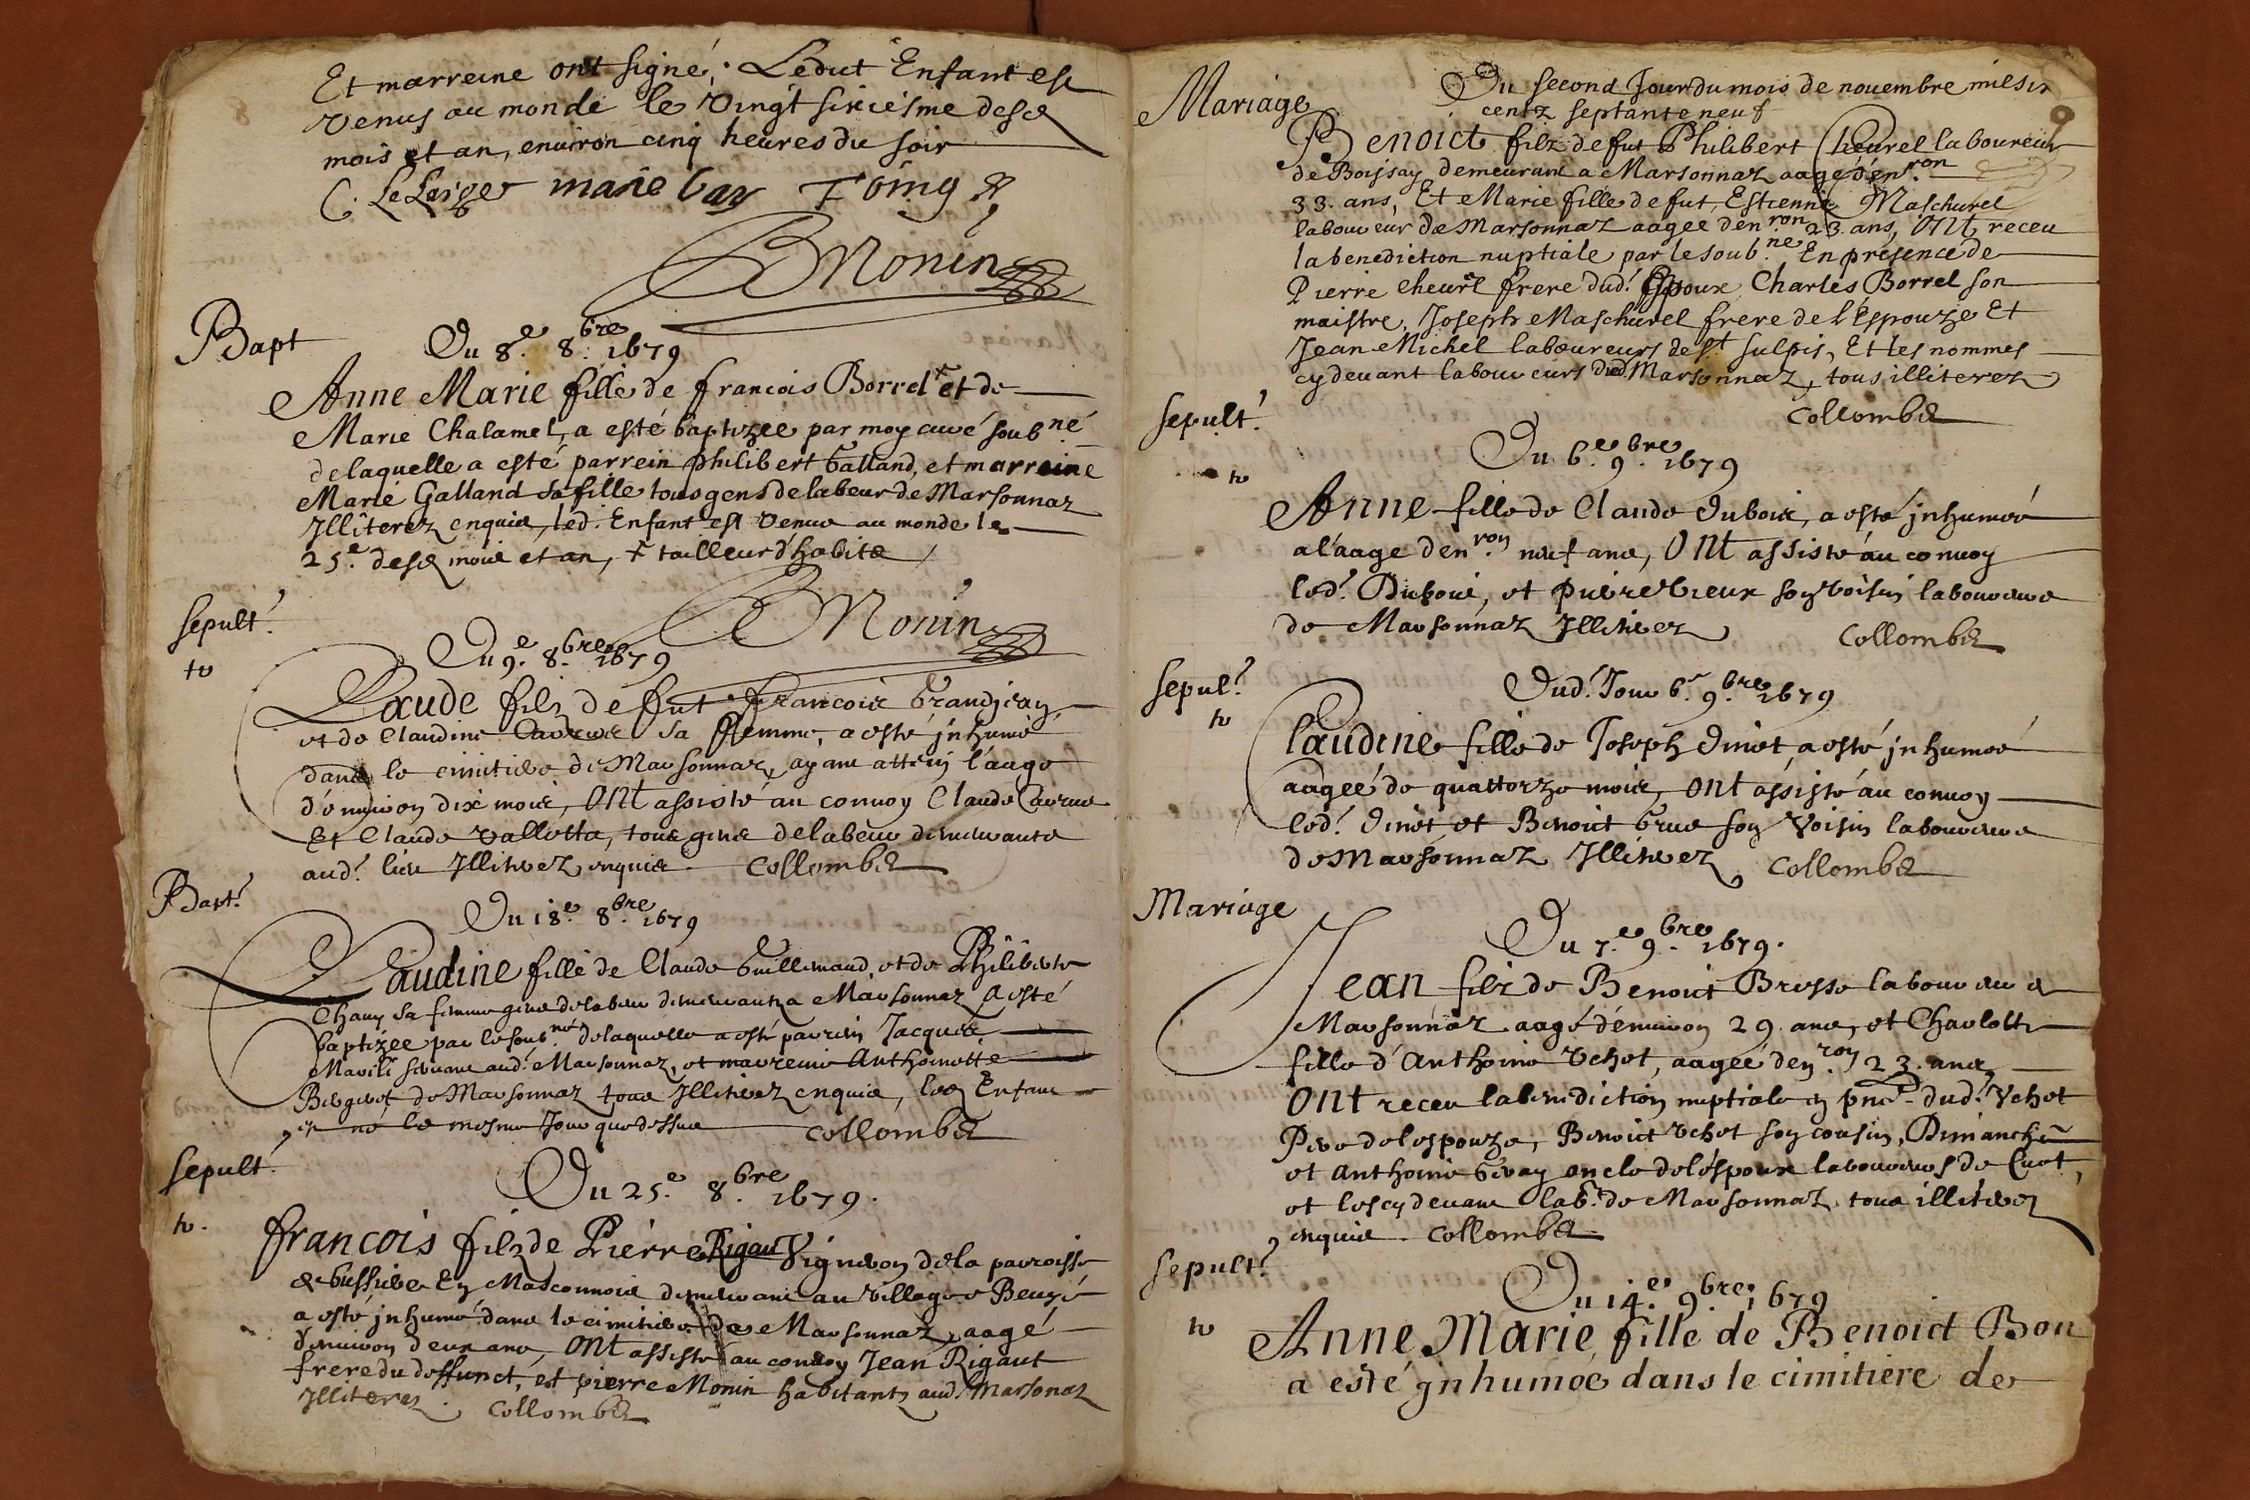 Et marreine ont signé, Ledict Enfant est
venus au monde le vingt sixiesme desd
mois et an, environ cinq heures du soir
C. LeLarge marie Gay
BMonin
Bapt
Du 8.e 8.bre 1679
Anne Marie fille de francois Borrel + et de
Marie Chalamel, a esté baptizée par moy curé soubné
de laquelle a esté parrein philibert Galland, et marreine
Marie Galland sa fille tous gens de labeur de Marsonnaz
Illiterez enquis, led. Enfant est venue au monde le
25.e desd mois et an, + tailleur d'habits
BMonin
sepult.
Du 9.e 8.bre 1679
Claude filz de fut francois Grandjean
et de Claudine sa ffemme, a esté inhumé
dans le cimitiere de Marsonnaz, ayant attein l'aage
d'environ dix mois, ONt assisté au convoy Claude
Et Claude Vallotta, tous gens de labeur demeurants
aud. lieu Illiterez enquis. Collombet
Bapt.
Du 18.e 8.bre 1679
Claudine fille de Claude Guillemaud et de Philiberte
Chany sa femme gens de labeur demeurantz a Marsonnaz a esté
baptizée par le soub.né de laquelle a esté parrein Jacques
aud. Marsonnaz, et marreine Anthoinette
de Marsonnaz tous Illiterez enquis, led Enfant
est né le mesme Jour que dessus Collombet
sepult.
Du 25.e 8.bre 1679.
francois filz de Pierre Rigaut Vigneron de la parroisse
de bussiere En Masconnois demeurant au village
a esté inhumé dans le cimitiere de Marsonnaz, aagé
d'environ deux ans, ONt assisté au convoy Jean Rigaut
frere du deffunct, et pierre Monin habitants aud. Marsonaz
Illiterez. Collombet
9
Mariage
Du second Jour du mois de novembre mil six
centz septante neuf
Benoict filz de fut Philibert Cheurel laboureur
de Boissay demeurant a Marsonnaz aagé d'en.ron
33. ans, Et Marie fille de fut Estienne Maschurel
laboureur de Marsonnaz aagee d'en.ron 23. ans, ONt receu
la benediction nuptiale par le soub.ne En presence de
Pierre cheurel frere dud. Espoux Charles Borrel son
maistre, Joseph Maschurel frere de l'Espouze Et
Jean Michel laboureurs de s.t sulpis, Et les nommes
cy devant laboureurs dud. Marsonnaz, tous illiterez
Collombet
sepult.
Du 6.e 9.bre 1679
Anne fille de Claude Dubois, a esté inhumée
a l'aage d'en.ron neuf ans, ONt assisté au convoy
led. Dubois, et Pierre Vieux son voisin laboureurs
de Marsonnaz Illiterez Collombet
sepul.
Dud. Jour 6.e 9.bre 1679
Claudine fille de Joseph Dinet a esté inhumée
aagée de quattorze mois, ONt assisté au convoy
led. Dinet et Benoict Grus son Voisin laboureurs
de Marsonnaz Illiterez Collombet
Mariage
Du 7.e 9.bre 1679.
Jean filz de Benoict Brosse laboureur a
Marsonnaz aagé d'environ 29. ans, et Charlotte
fille d'Anthoine Vchet, aagée d'en.ron 23. ans
ONt receu la benediction nuptiale en pnce dud. Vchet
Pere de l'espouze, Benoict Vchet son cousin,
et Anthoine oncle de l'espoux laboureurs de Cuet,
et les cy devant lab.rs de Marsonnaz tous illiterez
enquis. Collombet
sepult.
Du 14.e 9.bre 1679
Anne Marie fille de Benoict Bon
a esté inhumée dans le cimitiere de